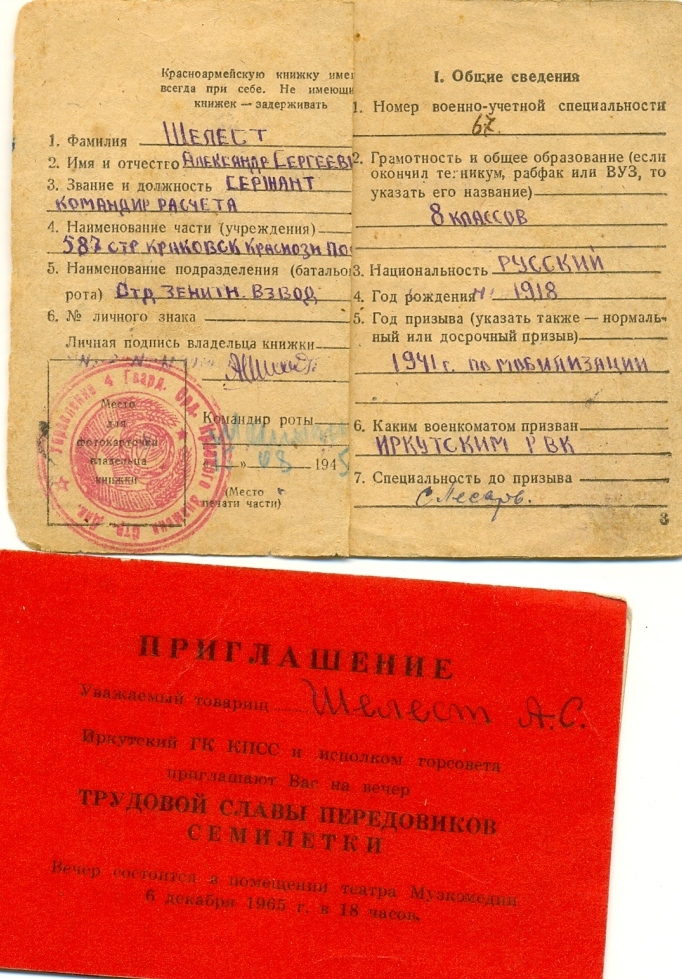 Красноармейскую книжку имет
всегда при себе. Не имеющи
книжек — задерживать
1. Фамилия ШЕЛЕСТ
2. Имя и отчество АЛЕКСАНДР СЕРГЕЕВИ
3. Звание и должность СЕРЖАНТ
КОМАНДИР РАСЧЕТА
4. Наименование части (учреждения)
587 СТР КРАКОВСК КРАСНОЗН ПО
5. Наименование подразделения (батальо
рота) Отд ЗЕНИТН. ВЗВОД
6. № личного знака
Личная подпись владельца книжки
Место
для
фотокарточки
владельца
книжки
Управление 4 Гвард. Стр. Див.
Командир роты
» 1945
(Место
печати части)
I. Общие сведения
1. Номер военно-учетной специальности
67.
2. Грамотность и общее образование (если
окончил техникум, рабфак или ВУЗ, то
указать его название)
8 КЛАССОВ
3. Национальность РУССКИЙ
4. Год рождения 1918
5. Год призыва (указать также — нормаль-
ный или досрочный призыв)
1941 г. по МОБИЛИЗАЦИИ
6. Каким военкоматом призван
ИРКУТСКИМ РВК
7. Специальность до призыва
Слесарь.
3
ПРИГЛАШЕНИЕ
Уважаемый товарищ Шелест А.С.
Иркутский ГК КПСС и исполком горсовета
приглашают Вас на вечер
ТРУДОВОЙ СЛАВЫ ПЕРЕДОВИКОВ
СЕМИЛЕТКИ
Вечер состоится в помещении театра Музкомедии
6 декабря 1965 г. в 18 часов.